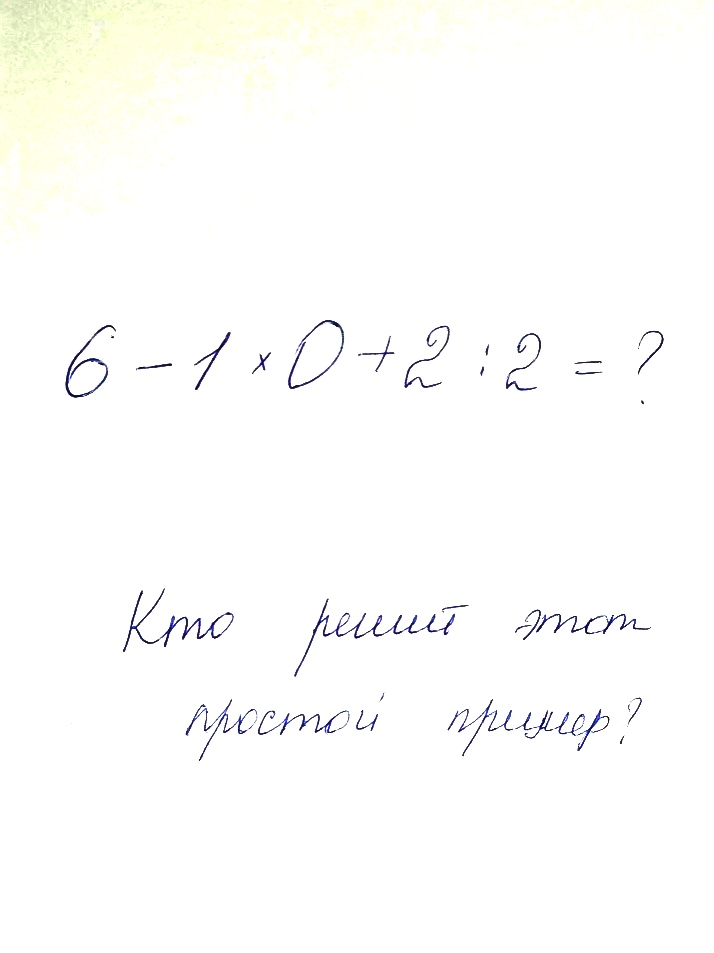 6 - 1 × 0 + 2 : 2 = ?
Кто решит этот
простой пример?